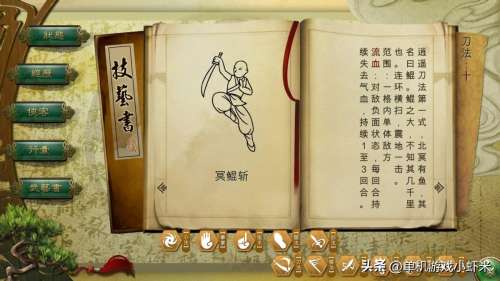 狀態
經歷
俠客
行囊
武藝書
技藝書
冥鲲斩
刀法 十
逍遥刀法第一式，北冥有鱼，其
名曰鲲。鲲之大，不知其几千里
也。连环横扫，震地一击。
范围：一格内单体敌方
流血：对敌负面状态，每回合持
续失去气血，持续1至3回合。
头条 @单机游戏小虾米